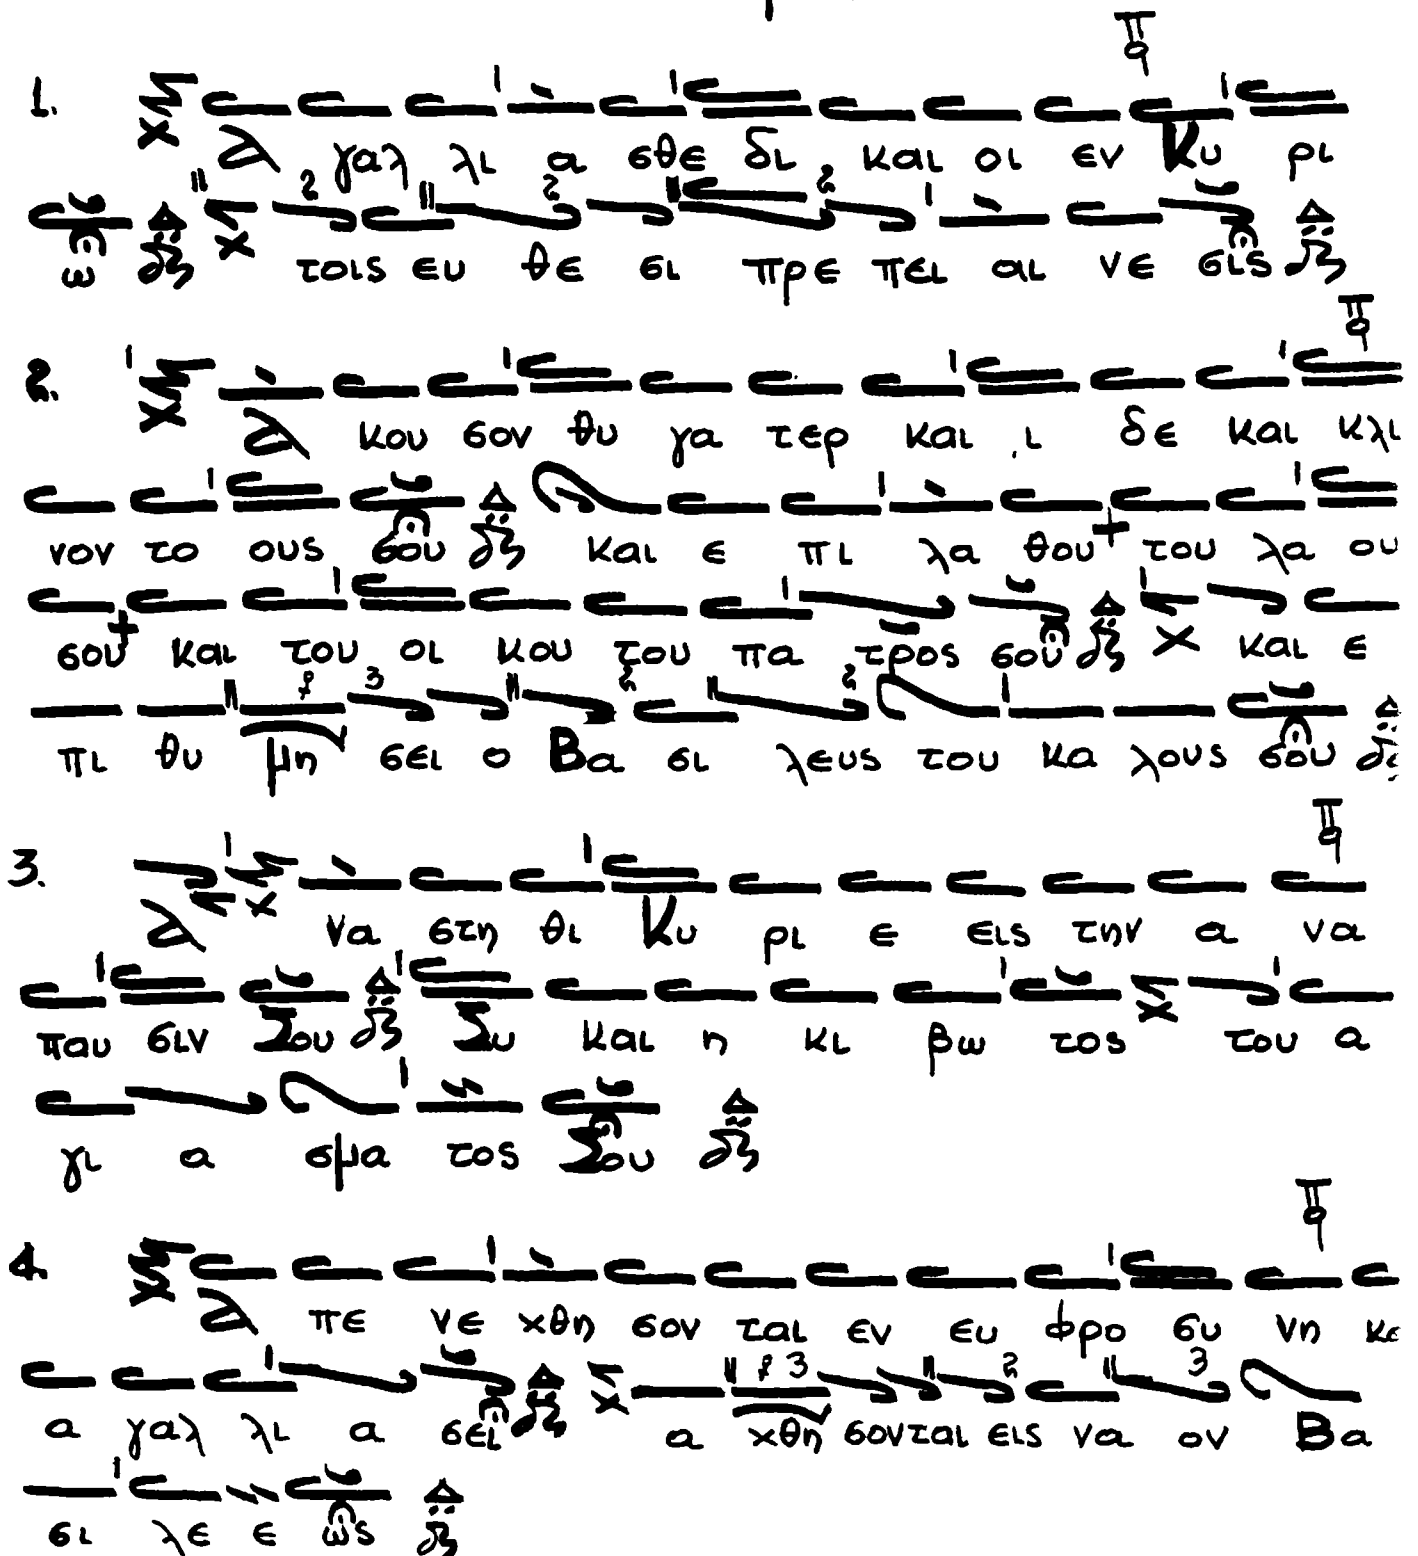 1. Α γαλ λι α σθε δι και οι εν Κυ ρι
ω τοις ευ θε σι πρε πει αι νε σις
2. Α κου σον θυ γα τερ και ι δε και κλι
νον το ους σου και ε πι λα θου του λα ου
σου και του οι κου του πα τρος σου και ε
πι θυ μη σει ο Βα σι λευς του κα λους σου
3. Α να στη θι Κυ ρι ε εις την α να
παυ σιν Σου Συ και η κι βω τος του α
γι α σμα τος Σου
4. Α πε νε χθη σον ται εν ευ φρο συ νη κε
α γαλ λι α σει α χθη σονται εις να ον Βα
σι λε ε ως